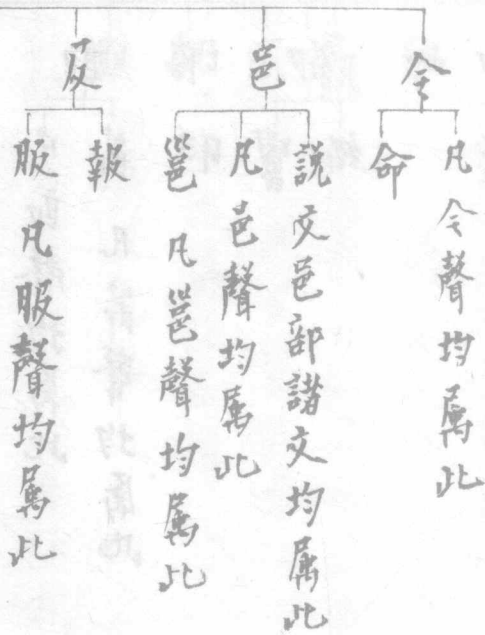 令
凡令聲均屬此
命
邑
說文邑部諸文均屬此
凡邑聲均屬此
邕 凡邕聲均屬此
𠬝
報
服 凡服聲均屬此